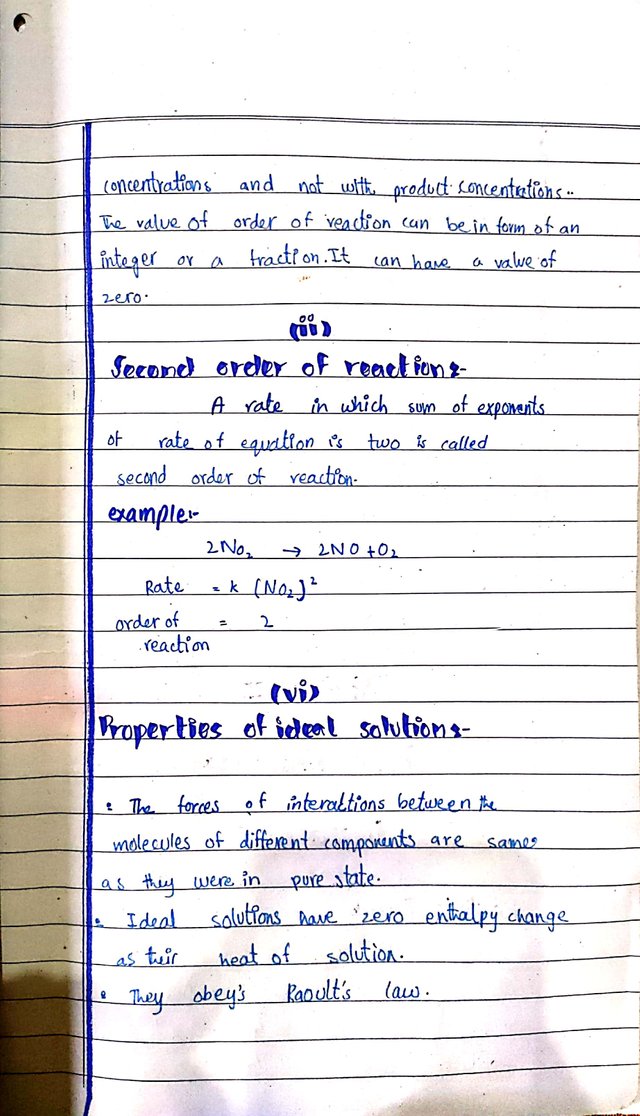 concentrations and not with product concentrations..
The value of order of reaction can be in form of an
integer or a fraction. It can have a value of
zero.
(ii)
Second order of reaction:-
A rate in which sum of exponents
of rate of equation is two is called
second order of reaction.
example:-
2No₂ → 2NO + O₂
Rate = k (NO₂]²
order of = 2
reaction
(vi)
Properties of ideal solutions:-
• The forces of interaltions between the
molecules of different components are same
as they were in pure state.
• Ideal solutions have zero enthalpy change
as their heat of solution.
• They obey's Raoult's law.